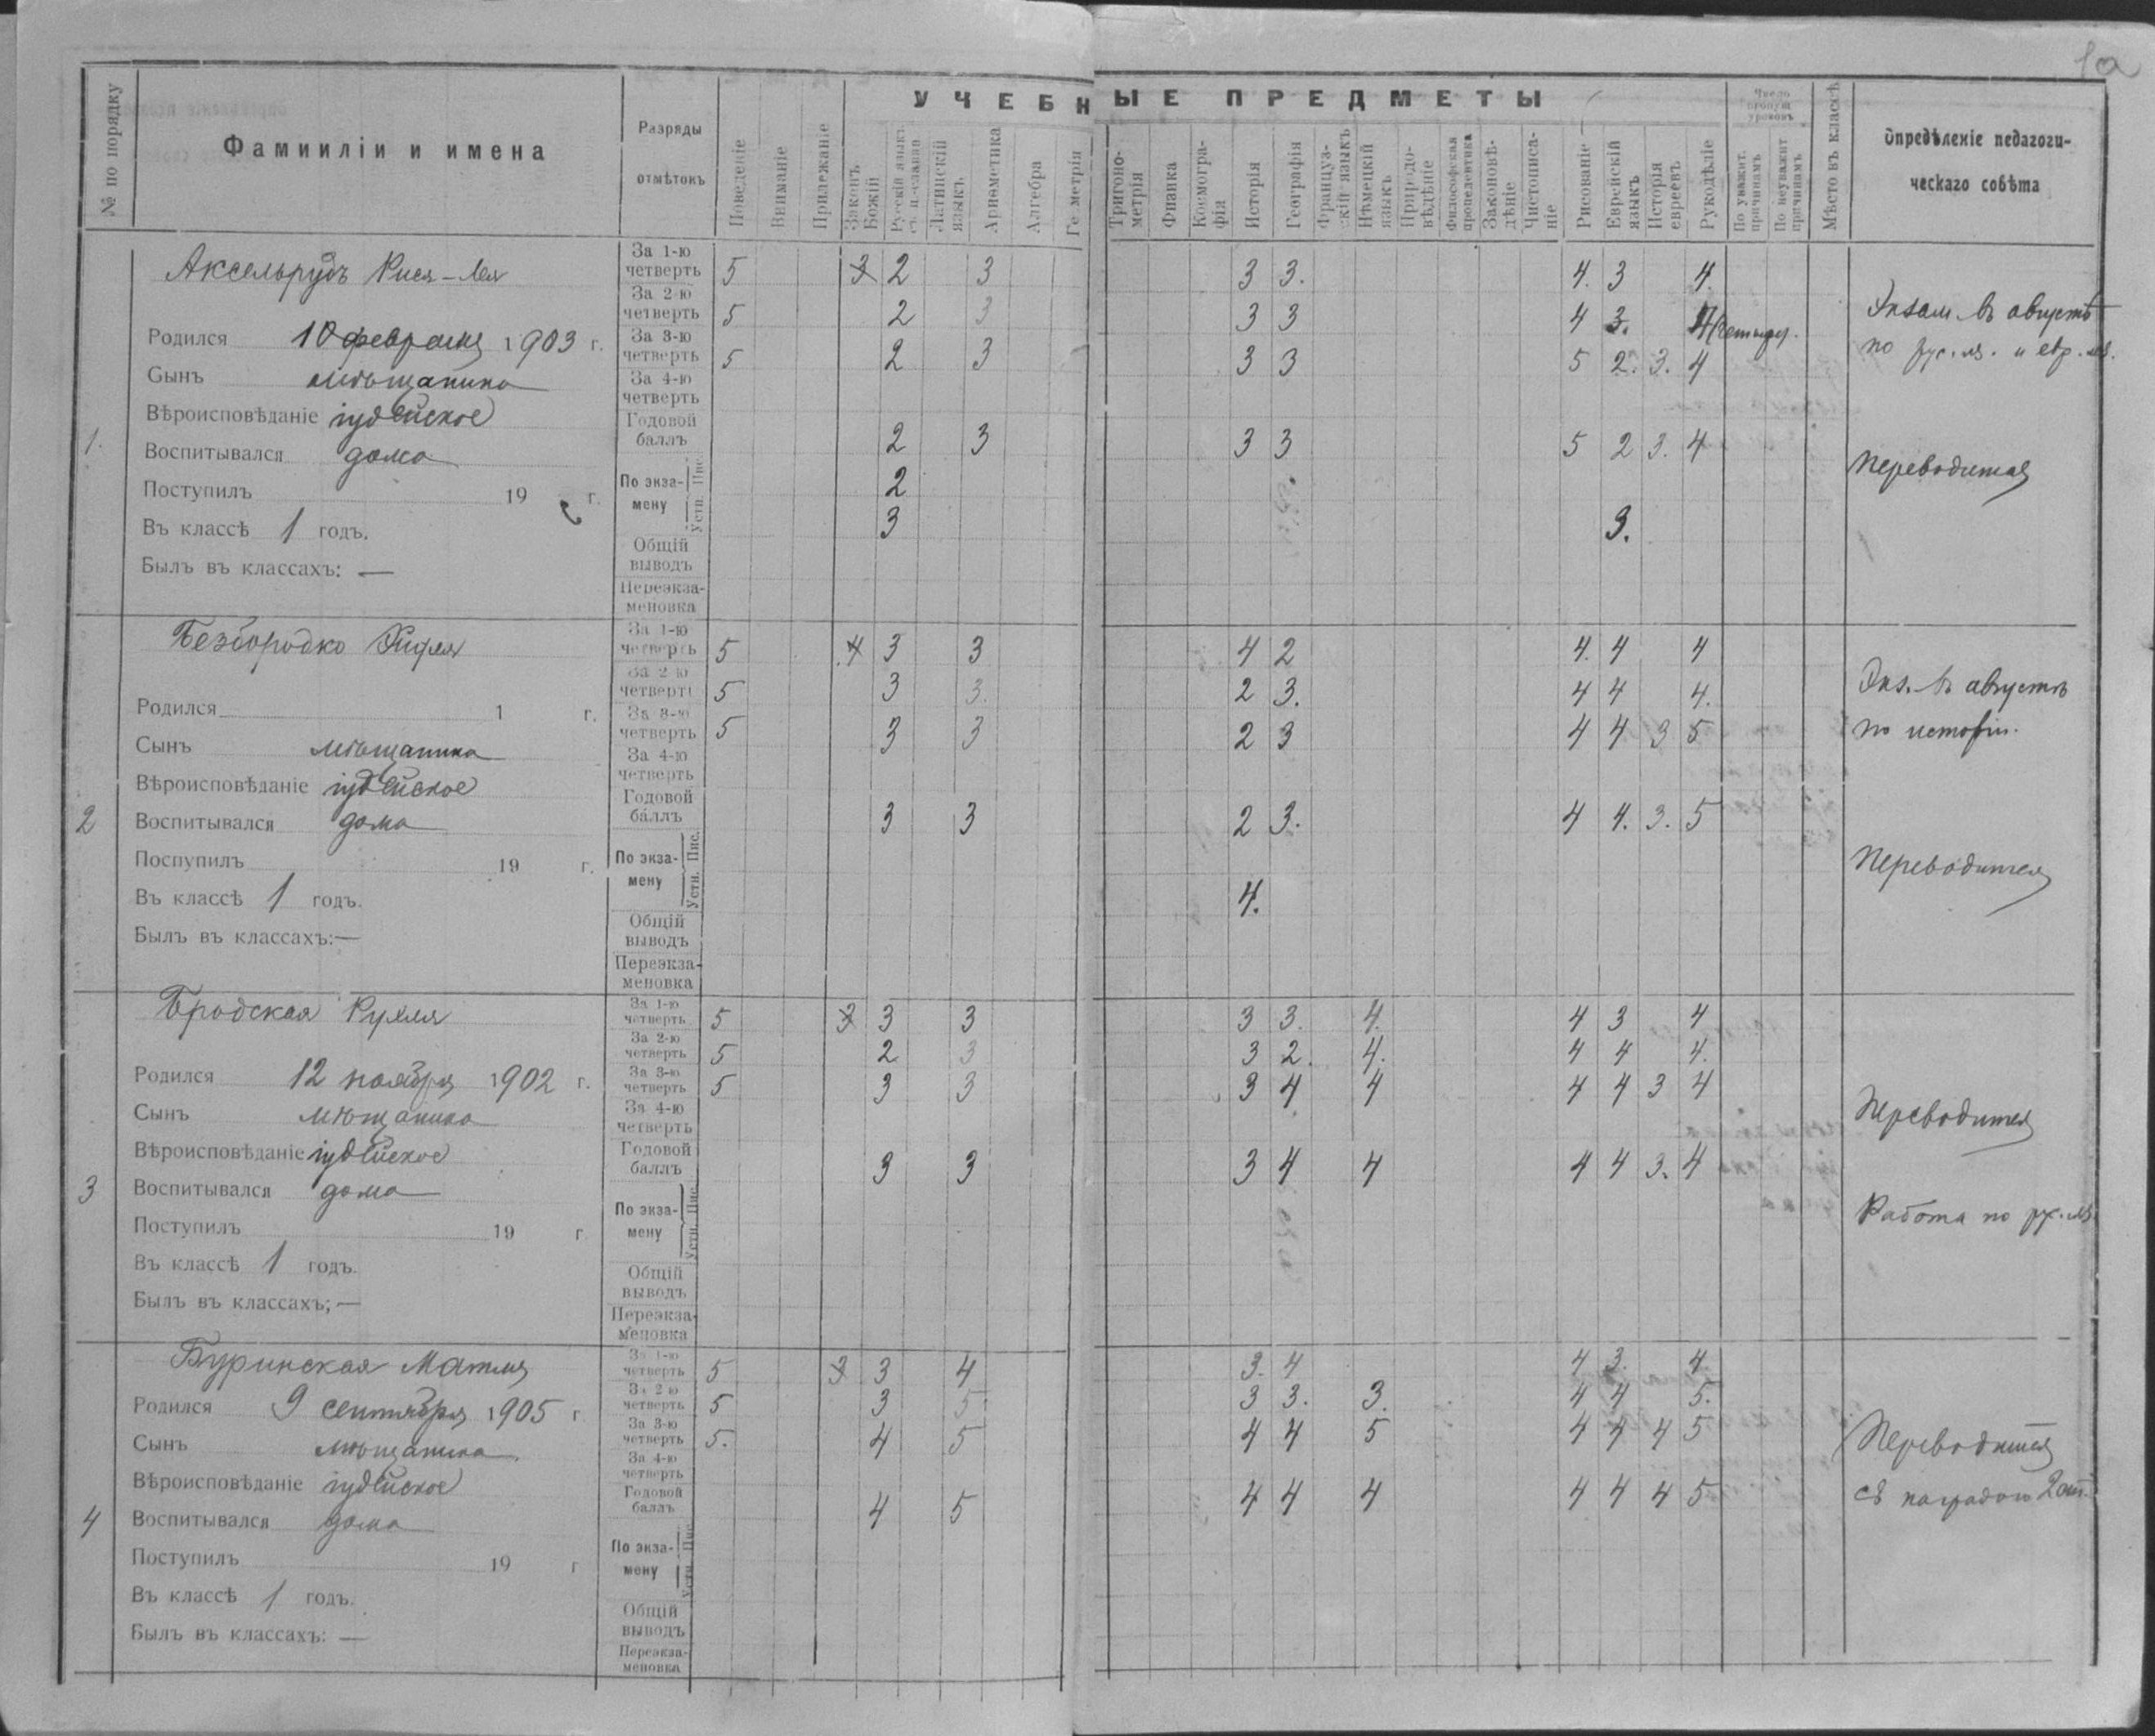 1а
УЧЕБНЫЕ ПРЕДМЕТЫ
№ по порядку
Фамииліи и имена
Разряды отмѣтокъ
Поведеніе
Вниманіе
Прилежаніе
Законъ Божій
Русскій языкъ съ ц-славян
Латинскій языкъ
Ариѳметика
Алгебра
Геометрія
Тригоно-метрія
Физика
Космогра-фія
Исторія
Географія
Француз-скій языкъ
Нѣмецкій языкъ
Природо-вѣдѣніе
Философская пропедевтика
Законовѣ-дѣніе
Чистописа-ніе
Рисованіе
Еврейскій языкъ
Исторія евреевъ
Рукодѣліе
Число пропущ. уроковъ
По уважит. причинамъ
По неуважит причинамъ
Мѣсто въ классѣ
Опредѣленіе педагоги-
ческаго совѣта
1.
Аксельрудъ Рися-Лея
Родился 10 февраля 1903 г.
Сынъ мѣщанина
Вѣроисповѣданіе іудейское
Воспитывался дома
Поступилъ 19 г.
Въ классѣ 1 годъ.
Былъ въ классахъ: —
За 1-ю четверть 5 3 2 3 3 3. 4. 3 4.
За 2-ю четверть 5 2 3 3 3 4 3. 4 (четыре).
За 3-ю четверть 5 2 3 3 3 5 2. 3. 4
За 4-ю четверть
Годовой баллъ 2 3 3 3 5 2 3. 4
По экзамену Пис. 2
Устн. 3 3.
Общій выводъ
Переэкза-меновка
Экзам. въ августѣ
по рус. яз. и евр. яз.
Переводится
2
Безбородко Эйдля
Родился 1 г.
Сынъ мѣщанина
Вѣроисповѣданіе іудейское
Воспитывался дома
Поспупилъ 19 г.
Въ классѣ 1 годъ.
Былъ въ классахъ: —
За 1-ю четверть 5 4 3 3 4 2 4. 4 4
За 2-ю четверть 5 3 3. 2 3. 4 4 4.
За 3-ю четверть 5 3 3 2 3 4 4 3 5
За 4-ю четверть
Годовой баллъ 3 3 2 3. 4 4. 3. 5
По экзамену Пис.
Устн. 4.
Общій выводъ
Переэкза-меновка
Экз. въ августѣ
по исторіи.
Переводится
3
Бродская Рухля
Родился 12 ноября 1902 г.
Сынъ мѣщанина
Вѣроисповѣданіе іудейское
Воспитывался дома
Поступилъ 19 г
Въ классѣ 1 годъ.
Былъ въ классахъ; —
За 1-ю четверть 5 3 3 3 3 3. 4. 4 3 4
За 2-ю четверть 5 2 3 3 2. 4. 4 4 4.
За 3-ю четверть 5 3 3 3 4 4 4 4 3 4
За 4-ю четверть
Годовой баллъ 3 3 3 4 4 4 4 3. 4
По экзамену Пис. Устн.
Общій выводъ
Переэкза-меновка
Переводится
Работа по рус. яз.
4
Буринская Матля
Родился 9 сентября 1905 г
Сынъ мѣщанина
Вѣроисповѣданіе іудейское
Воспитывался дома
Поступилъ 19 г
Въ классѣ 1 годъ.
Былъ въ классахъ: —
За 1-ю четверть 5 3 3 4 3. 4 4 3. 4.
За 2-ю четверть 5 3 5. 3 3. 3. 4 4 5.
За 3-ю четверть 5. 4 5 4 4 5 4 4 4 5
За 4-ю четверть
Годовой баллъ 4 5 4 4 4 4 4 4 5
По экзамену Пис. Устн.
Общій выводъ
Переэкза-меновка
Переводится
съ наградою 2 ст.